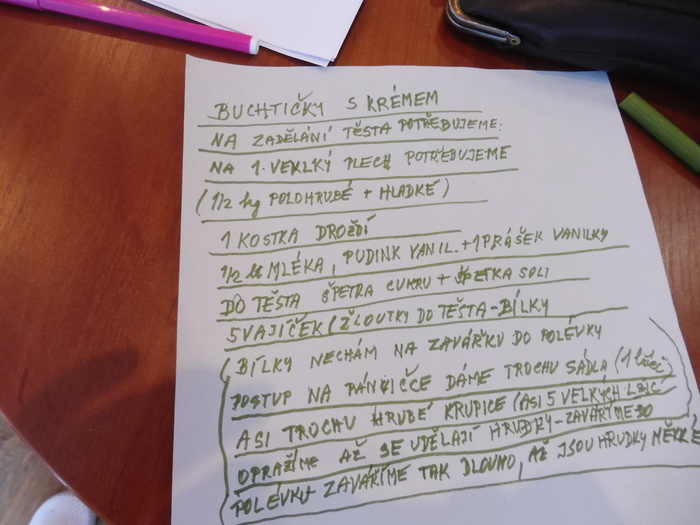 BUCHTIČKY S KRÉMEM
NA ZADĚLÁNÍ TĚSTA POTŘEBUJEME:
NA 1. VELKÝ PLECH POTŘEBUJEME
(1/2 kg POLOHRUBÉ + HLADKÉ)
1 KOSTKA DROŽDÍ
1/2 lt MLÉKA, PUDINK VANIL. + 1 PRÁŠEK VANILKY
DO TĚSTA ŠPETRA CUKRU + ŠPETKA SOLI
5 VAJÍČEK (ŽLOUTKY DO TĚSTA - BÍLKY
(BÍLKY NECHÁM NA ZAVÁŘKU DO POLÉVKY
POSTUP NA PÁNVIČCE DÁME TROCHU SÁDLA (1 lžíci)
ASI TROCHU HRUBÉ KRUPICE (ASI 5 VELKÝCH LŽIC
OPRAŽÍME AŽ SE UDĚLAJÍ HRUDKY - ZAVAŘÍME DO
POLÉVKY ZAVÁŘÍME TAK DLOUHO, AŽ JSOU HRUDKY MĚKKÉ